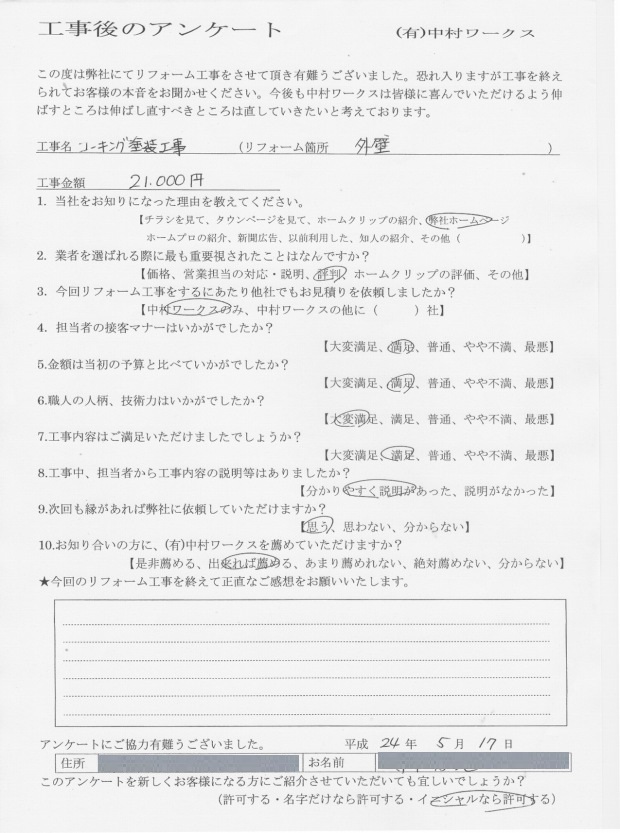 工事後のアンケート　(有)中村ワークス
この度は弊社にてリフォーム工事をさせて頂き有難うございました。恐れ入りますが工事を終え
られてお客様の本音をお聞かせください。今後も中村ワークスは皆様に喜んでいただけるよう伸
ばすところは伸ばし直すべきところは直していきたいと考えております。
工事名 コーキング塗装工事 (リフォーム箇所 外壁 )
工事金額 21.000円
1. 当社をお知りになった理由を教えてください。
【チラシを見て、タウンページを見て、ホームクリップの紹介、弊社ホームページ
ホームプロの紹介、新聞広告、以前利用した、知人の紹介、その他（ ）】
2. 業者を選ばれる際に最も重要視されたことはなんですか？
【価格、営業担当の対応・説明、評判、ホームクリップの評価、その他】
3. 今回リフォーム工事をするにあたり他社でもお見積りを依頼しましたか？
【中村ワークスのみ、中村ワークスの他に（ ）社】
4. 担当者の接客マナーはいかがでしたか？
【大変満足、満足、普通、やや不満、最悪】
5.金額は当初の予算と比べていかがでしたか？
【大変満足、満足、普通、やや不満、最悪】
6.職人の人柄、技術力はいかがでしたか？
【大変満足、満足、普通、やや不満、最悪】
7.工事内容はご満足いただけましたでしょうか？
【大変満足、満足、普通、やや不満、最悪】
8.工事中、担当者から工事内容の説明等はありましたか？
【分かりやすく説明があった、説明がなかった】
9.次回も縁があれば弊社に依頼していただけますか？
【思う、思わない、分からない】
10.お知り合いの方に、(有)中村ワークスを薦めていただけますか？
【是非薦める、出来れば薦める、あまり薦めれない、絶対薦めない、分からない】
★今回のリフォーム工事を終えて正直なご感想をお願いいたします。
アンケートにご協力有難うございました。　平成 24 年 5 月 17 日
住所　お名前
このアンケートを新しくお客様になる方にご紹介させていただいても宜しいでしょうか？
（許可する・名字だけなら許可する・イニシャルなら許可する）